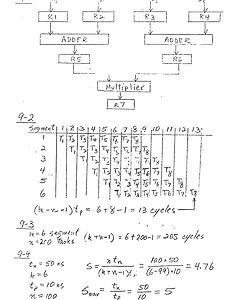 R1 R2 R3 R4
ADDER ADDER
R5 R6
Multiplier
R7
9-2
Segment 1 2 3 4 5 6 7 8 9 10 11 12 13
1 T1 T2 T3 T4 T5 T6 T7 T8
2 T1 T2 T3 T4 T5 T6 T7 T8
3 T1 T2 T3 T4 T5 T6 T7 T8
4 T1 T2 T3 T4 T5 T6 T7 T8
5 T1 T2 T3 T4 T5 T6 T7 T8
6 T1 T2 T3 T4 T5 T6 T7 T8
(k+n-1)tp = 6+8-1 = 13 cycles
9-3
k=6 segment
n=200 tasks (k+n-1) = 6+200-1 = 205 cycles
9-4
tn = 50 ns
k=6
tp = 10 ns
n=100
S = n tn / (k+n-1)tp = 100×50 / (6+99)·10 = 4.76
Smax = tn / tp = 50 / 10 = 5